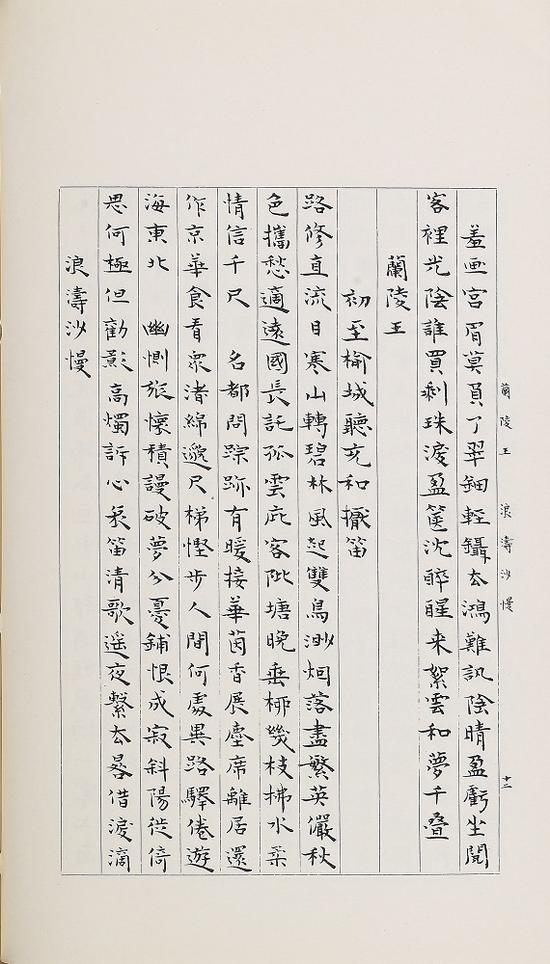 蘭陵王　浪濤沙慢　十二
羞画宮眉莫負了翠鈿輕鑷去鴻難訊陰晴盈虧坐閱
客裡光陰誰買剩珠淚盈篋沈醉醒来絮雲和夢千疊
蘭陵王
初至榆城聽克和擫笛
路修直流目寒山轉碧林風起雙鳥渺烟落盡繁英儼秋
色攜愁適遠國長託孤雲庇客陂塘晚垂柳幾枝拂水柔
情信千尺　名都問踪跡有暖接華茵香展塵席離居還
作京華食看眾渚綿邈尺梯慳步人間何處異路驛倦遊
海東北　幽惻旅懷積謾破夢分憂鋪恨成寂斜陽徙倚
思何極但勸影高燭訴心哀笛清歌遥夜繫去晷借淚滴
浪濤沙慢